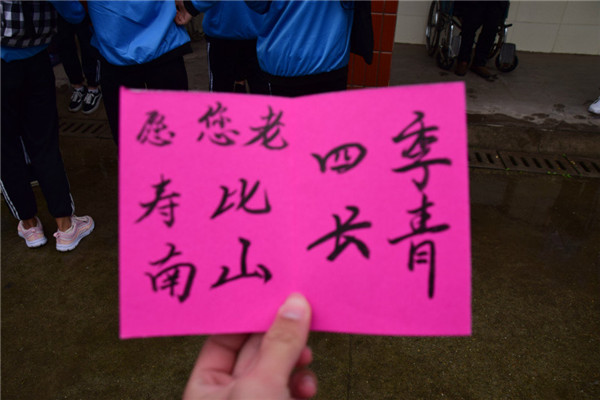 愿您老
寿比
南山
四季
长青